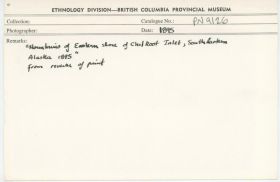 ETHNOLOGY DIVISION—BRITISH COLUMBIA PROVINCIAL MUSEUM
Collection: Catalogue No.: PN9126
Photographer: Date: 1895
Remarks:
"Mountains of Eastern shore of Root Inlet, Southeastern
Alaska 1895"
from reverse of print